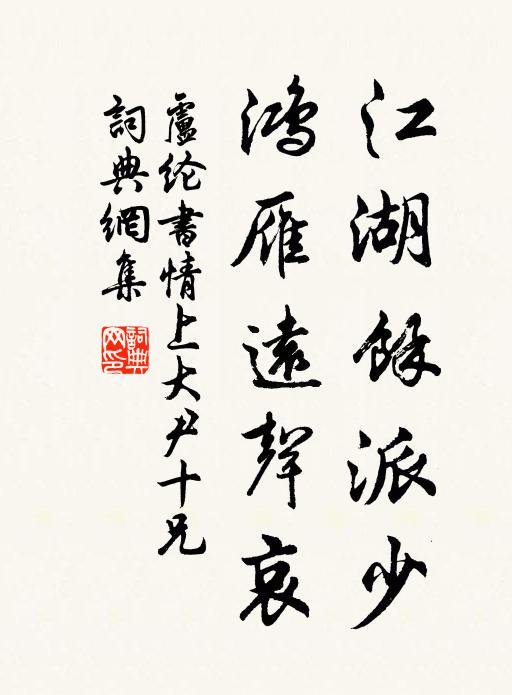 江湖餘派少
鴻雁遠聲哀
盧纶書情上大尹十兄
詞典網集
詞典網印